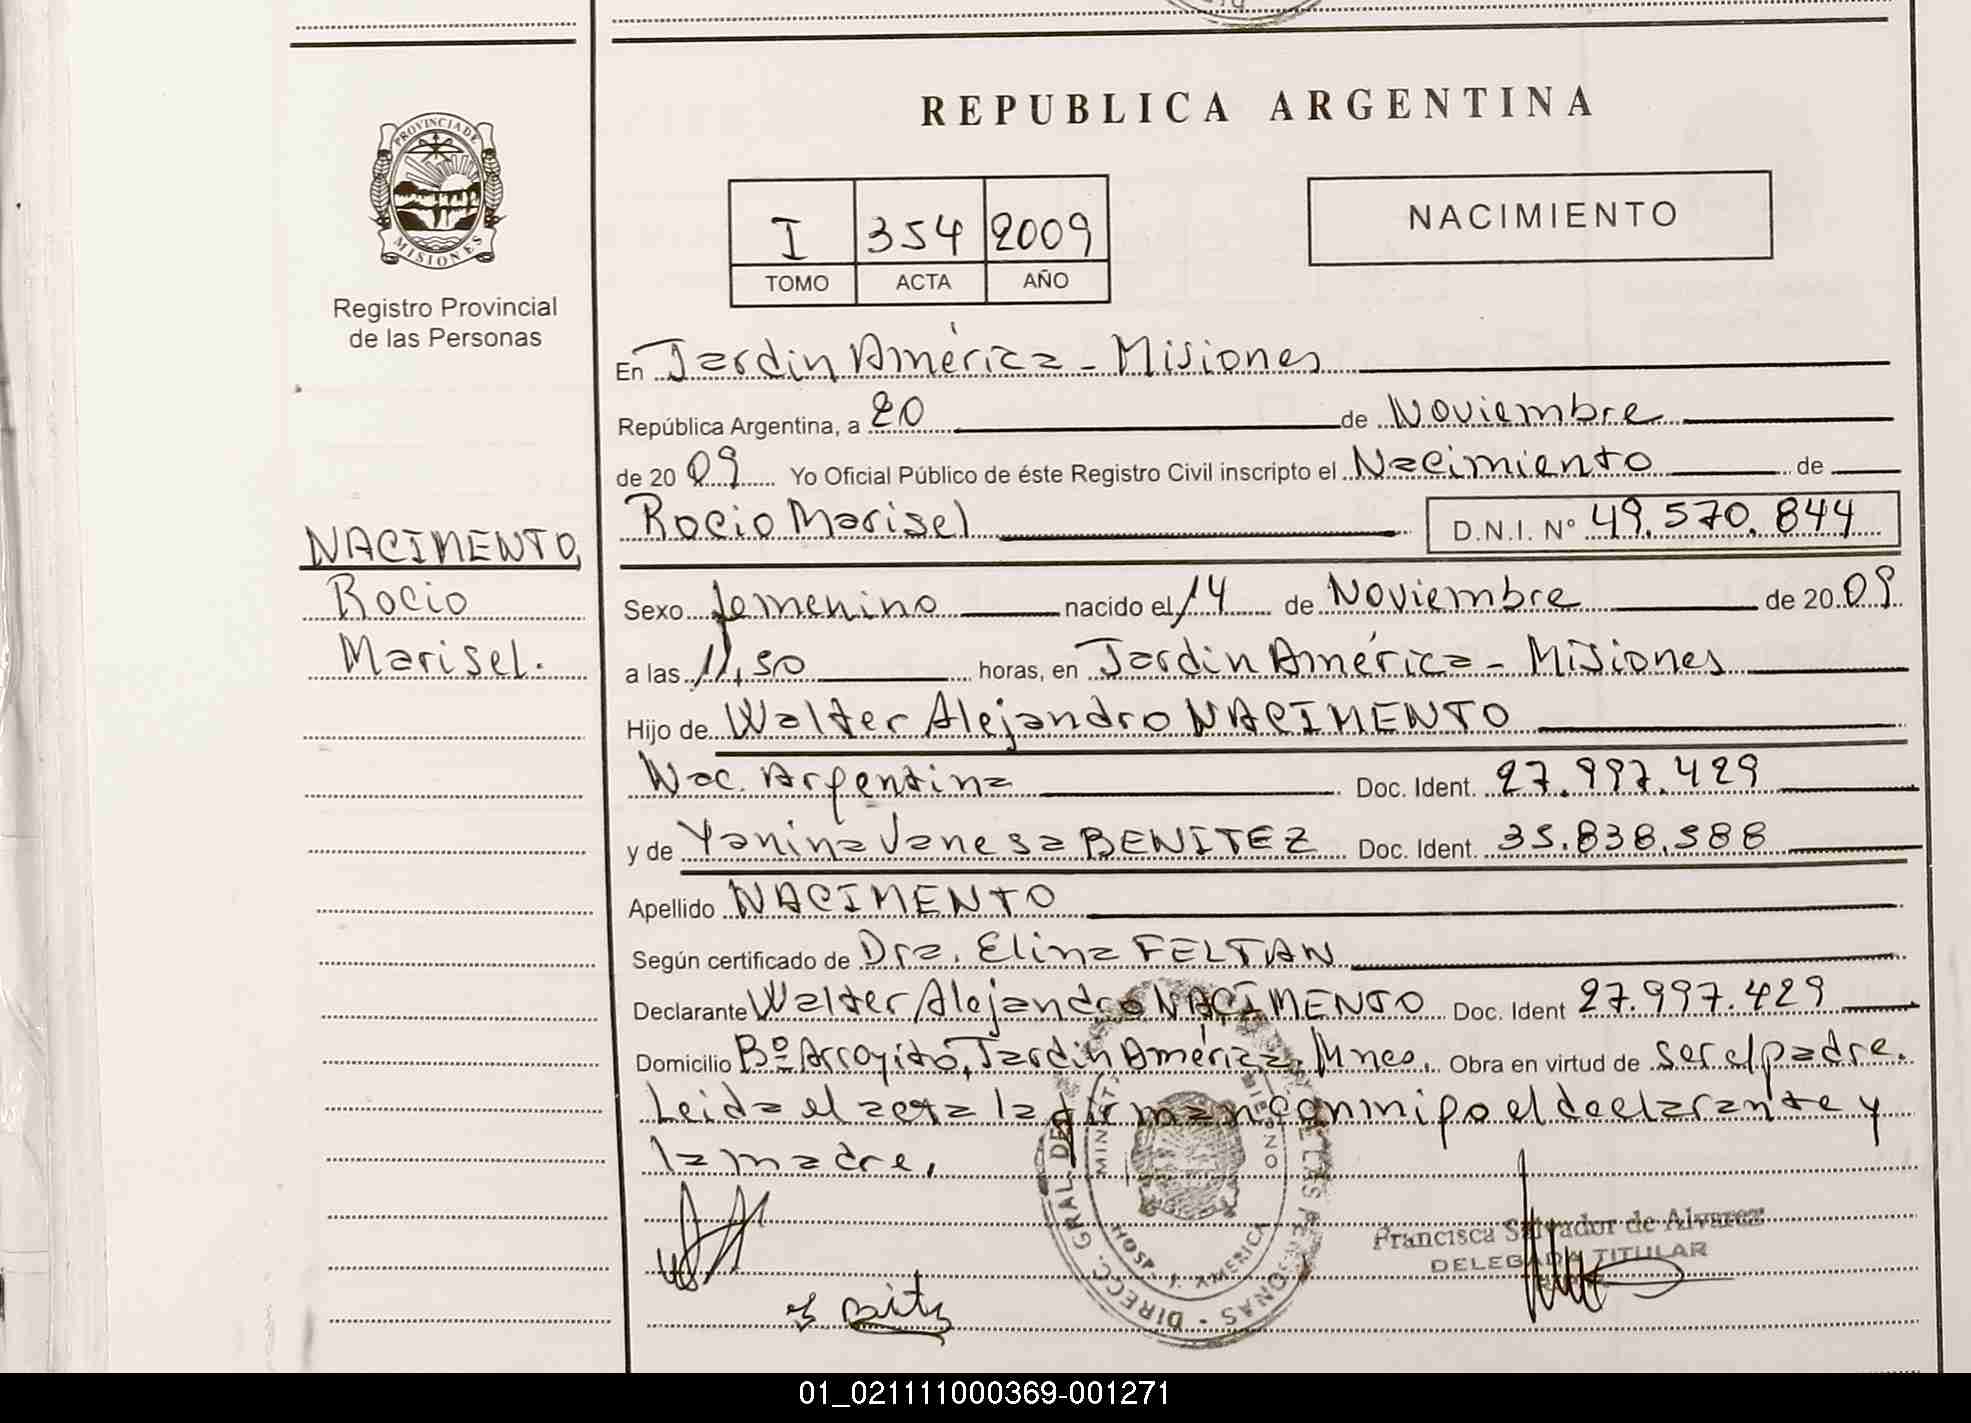 REPUBLICA ARGENTINA
PROVINCIA DE
MISIONES
Registro Provincial
de las Personas
I 354 2009
TOMO ACTA AÑO
NACIMIENTO
En Jardin América - Misiones
República Argentina, a 20 de Noviembre
de 2009 Yo Oficial Público de éste Registro Civil inscripto el Nacimiento de
Rocio Marisel D.N.I. N° 49.570.844
NACIMENTO
Rocio
Marisel.
Sexo femenino nacido el 14 de Noviembre de 2009
a las 11,50 horas, en Jardin América - Misiones
Hijo de Walter Alejandro NACIMENTO
Nac. Argentina Doc. Ident. 27.997.429
y de Yanina Vanesa BENITEZ Doc. Ident. 35.838.588
Apellido NACIMENTO
Según certificado de Dra. Elina FELTAN
Declarante Walter Alejandro NACIMENTO Doc. Ident 27.997.429
Domicilio Bº Arroyito, Jardin América. Mnes. Obra en virtud de ser el padre.
Leida el acta la firman conmigo el declarante y
la madre.
Francisca Salvador de Alvarez
DELEGADA TITULAR
DIRECC. GRAL. DEL
HOSP. J. AMERICA
01_021111000369-001271